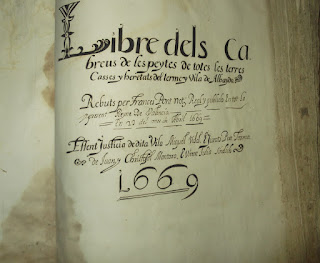 Libre dels Ca
breus de les peytes de totes les terres
Casses y heretats del terme y Vila de Albayda
Rebuts per Francés Pere not. Real y publich en tot lo
present Regne de Valencia
en 22 del mes de Abril 1669
Essent Justicia de dita Vila Miquel
de Juan, y
1669